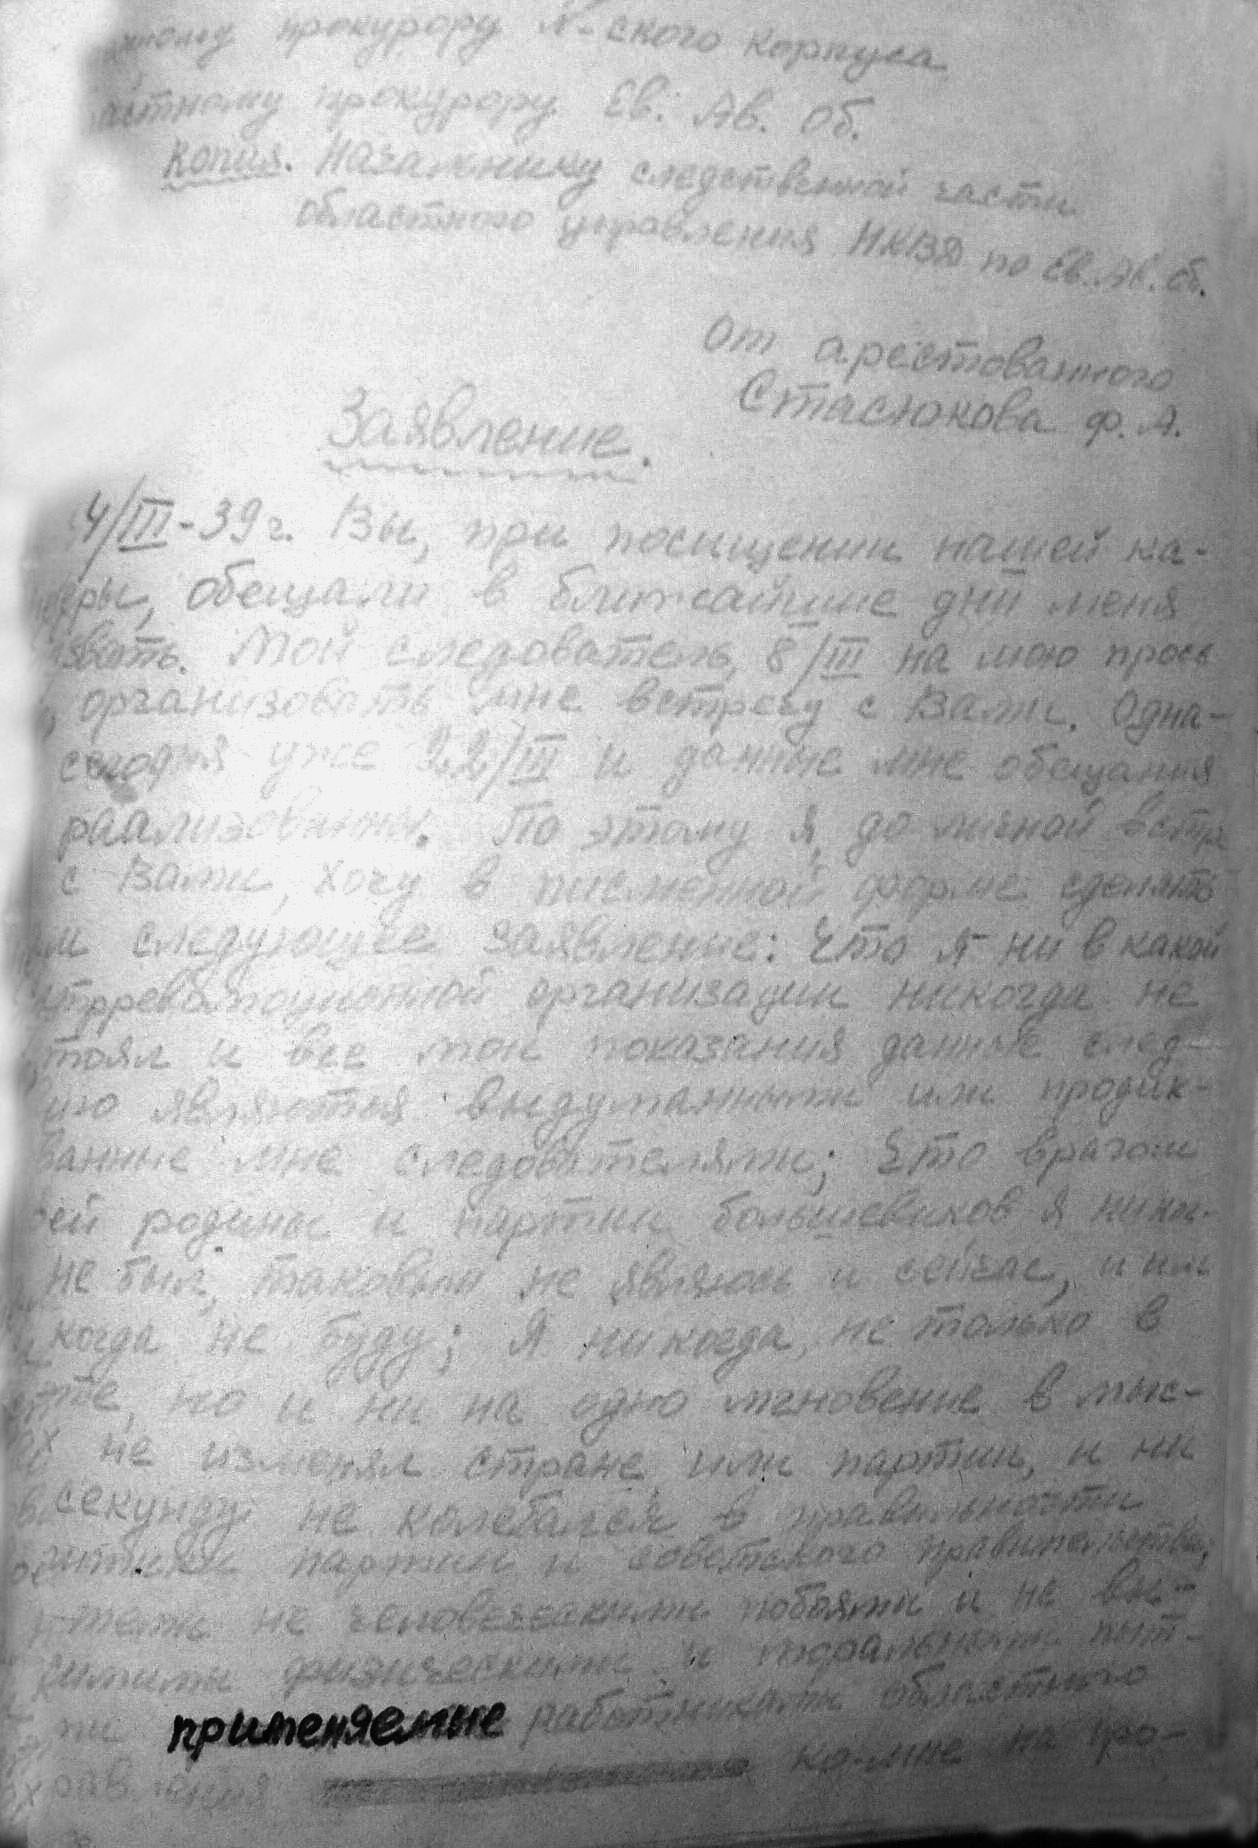 прокурору N-ского корпуса
прокурору Ев. Ав. Об.
Копия. Начальнику следственной части
областного управления НКВД по Ев. Ав. Об.
От арестованного
Стасюкова Ф. А.
Заявление.
4/III-39 г. Вы, при посищении нашей ка-
меры, обещали в ближайшие дни меня
Мой следователь, 8/III на мою прось
организовать мне встречу с Вами. Одна-
сегодня уже 22/III и данные мне обещания
раализованны. По этому я, до личной встре
с Вами, хочу в писменной форме сделать
следующее заявление: Что я ни в какой
контрреволюционной организации никогда не
стоял и все мои показания данные след-
ию являются выдуманными или продик-
ванные мне следователями; Что врагом
ей родины и партии большевиков я ника-
не был, таковым не являюсь и сейчас, и ни
когда не буду; Я никогда, не только в
но и ни на одно мгновение в мыс-
ях не изменял стране или партии, и ни
секунду не колебался в правильности
литики партии и советского правительства;
теми не человеческими побоями и не вы-
симыми физическими и моральными пыт-
ми применяемые работниками областного
управления ко-мне на про-